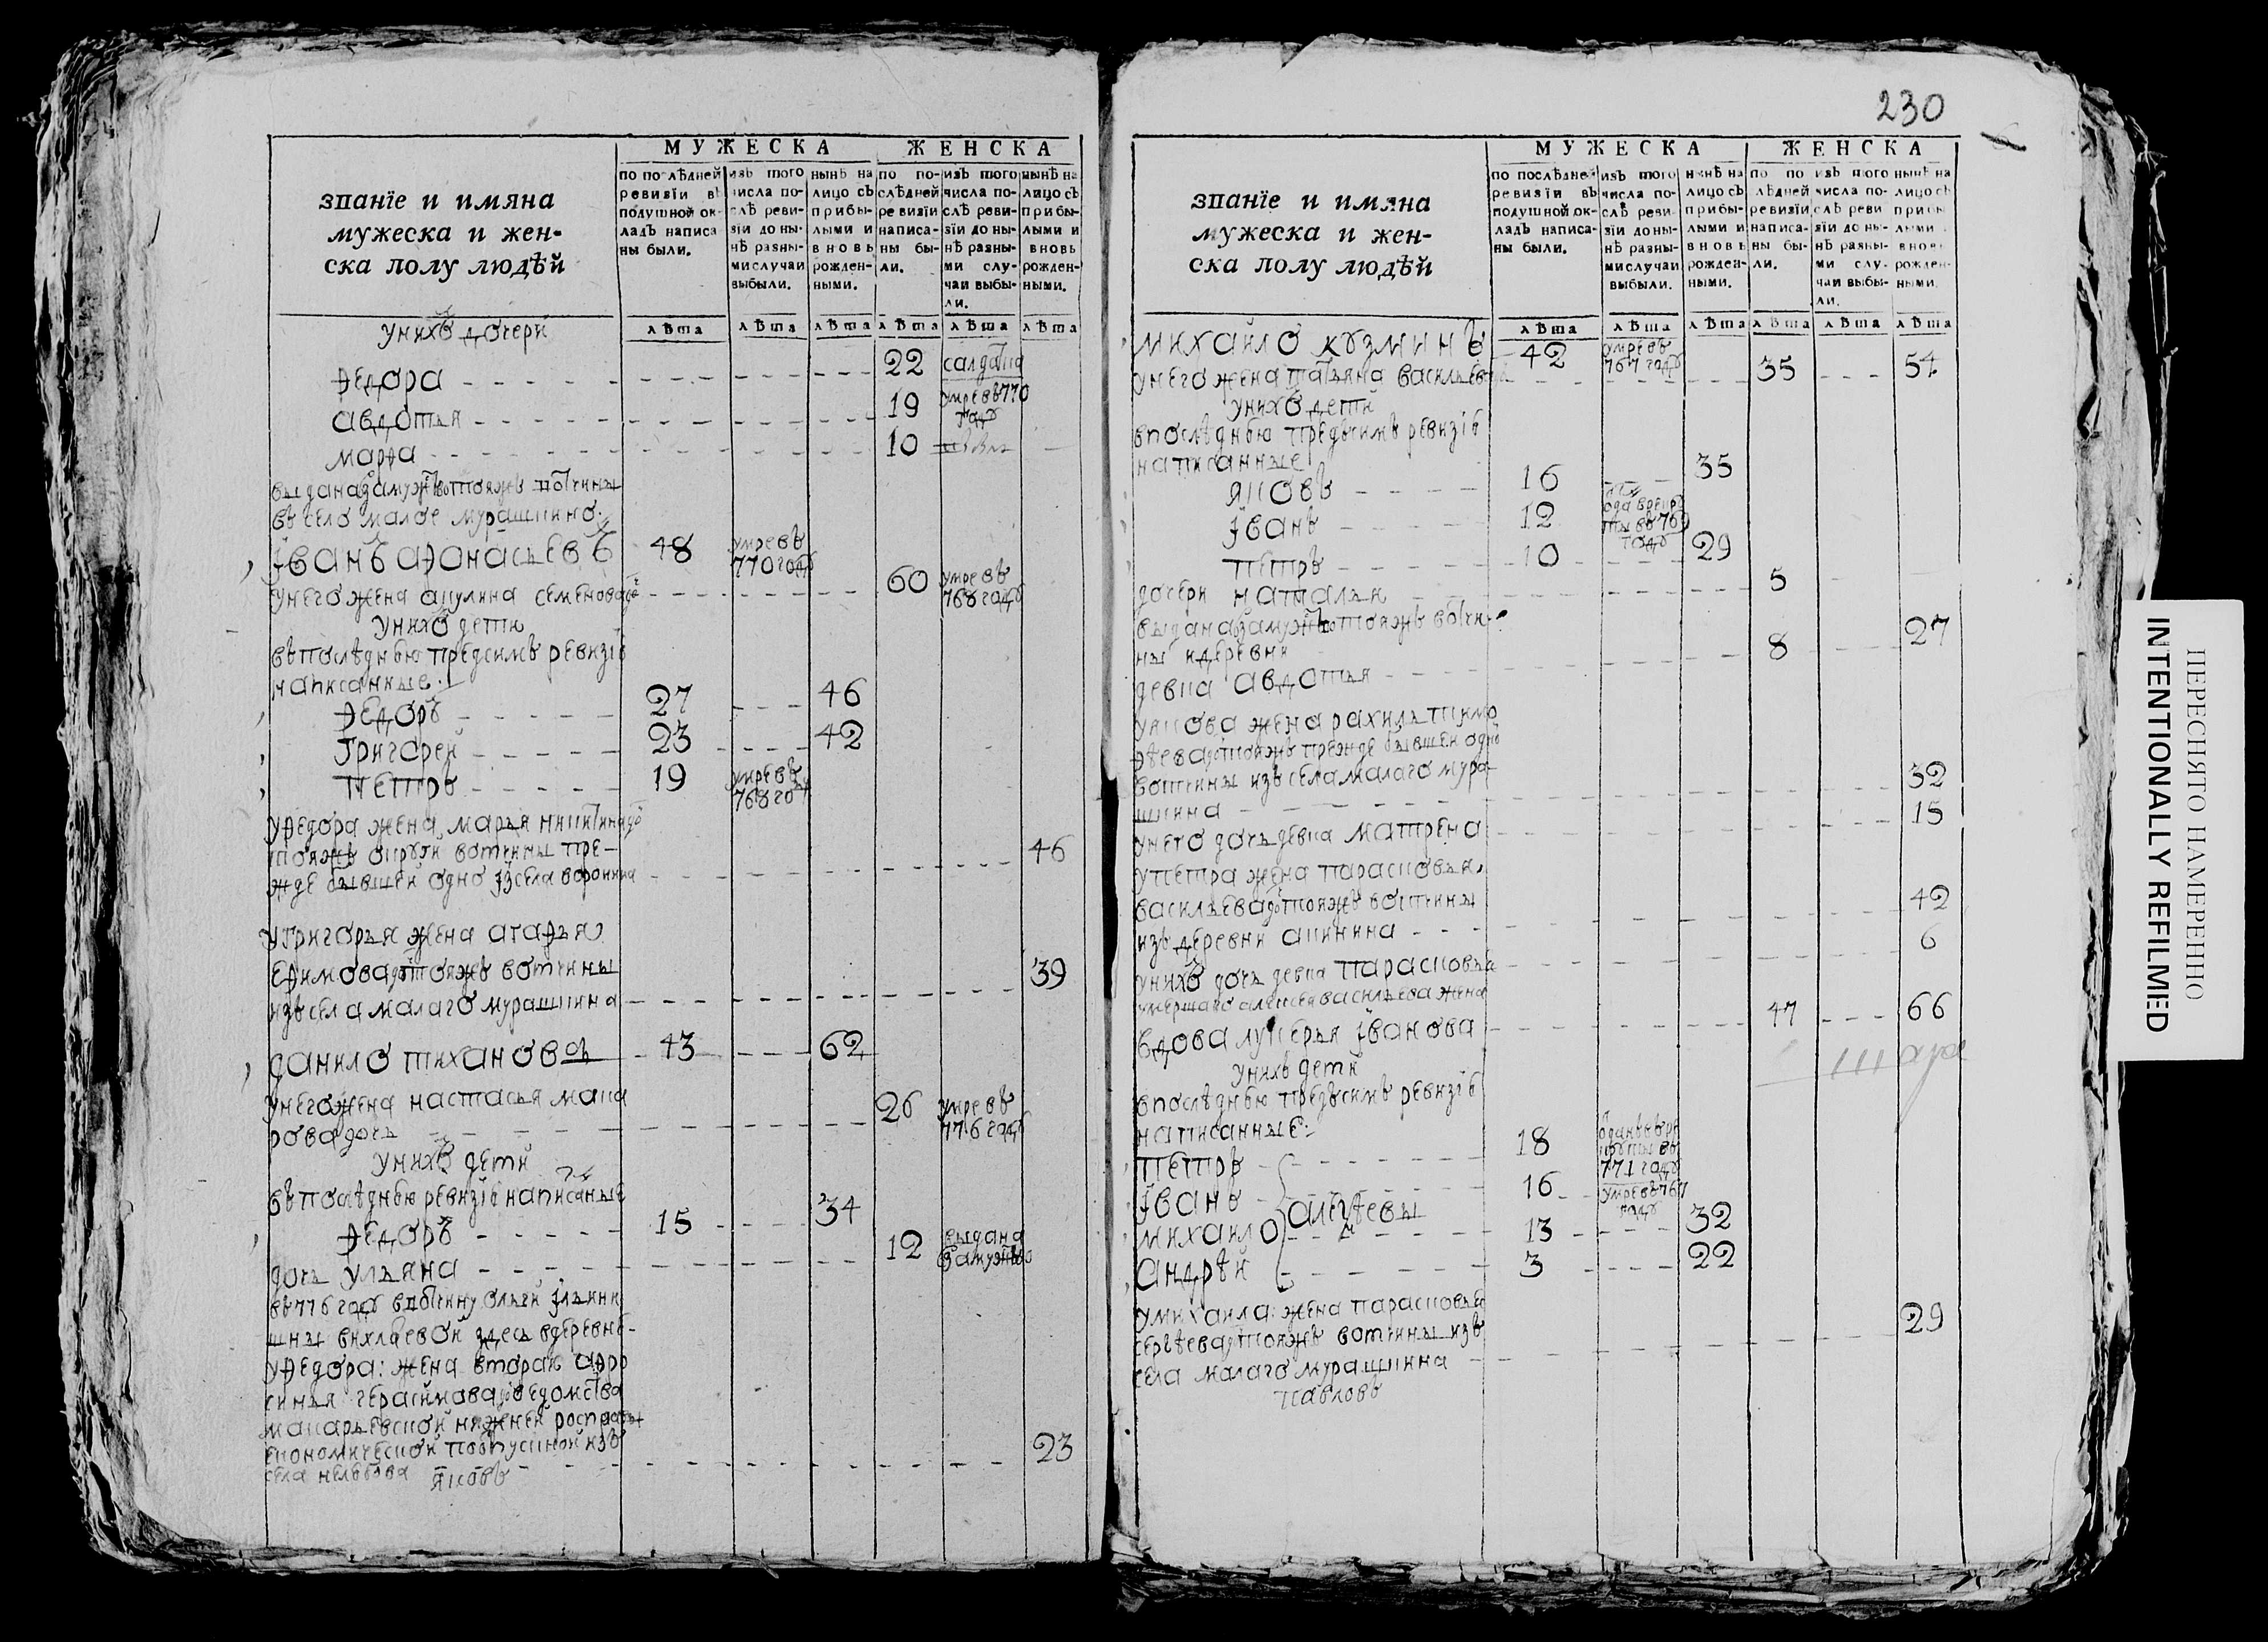 званїе и имяна
мужеска и жен-
ска полу людѣй
МУЖЕСКА
ЖЕНСКА
по послѣдней
ревизїи въ
подушной ок-
ладъ написа-
ны были.
изъ того
числа по-
слѣ реви-
зїи до ны-
нѣ разны-
ми случаи
выбыли.
нынѣ на
лицо съ
прибы-
лыми и
вновь
рожден-
ными.
по по-
слѣдней
ревизїи
написа-
ны бы-
ли.
изъ того
числа по-
слѣ реви-
зїи до ны-
нѣ разны-
ми слу-
чаи выбы-
ли.
нынѣ на
лицо съ
прибы-
лыми и
вновь
рожден-
ными.
лѣта лѣта лѣта лѣта лѣта лѣта
у нихъ дочери
Ѳедора 22 салдатка
авдотья 19 умре въ 770 годъ
марѳа 10
выдана замужъ тояжъ вотчины
въ село малое мурашкино
Іванъ аѳонасьевъ 48 умре въ 770 годъ
у него жена акулина семенова 60 умре въ 768 годъ
у нихъ дети
въ последнею предсимъ ревизіѣ
написанные
Ѳедоръ 27 46
Григорей 23 42
Петръ 19 умре въ 768 го
у Ѳедора жена марья никитина
тояжъ округи вотчины пре-
жде бывшей одно ізъ села воронина 46
у григорья жена агафья
ефимова тояжъ вотчины
изъ села малаго мурашкина 39
данило тихановъ 43 62
у него жена настасья мака
рова дочь 26 умре въ 776 годъ
у нихъ дети
въ последнею ревизіѣ написаные
Ѳедоръ 15 34
дочь ульяна 12 выдана замужъ
въ 776 годъ в вотчину ольги ильини
шны вихляевой здесь в деревне
у Ѳедора: жена вторая афро
синья герасимова ведомства
макарьевской нижней росправы
економической
села 23
Яковъ
230
званїе и имяна
мужеска и жен-
ска полу людѣй
МУЖЕСКА
ЖЕНСКА
по послѣдней
ревизїи въ
подушной ок-
ладъ написа-
ны были.
изъ того
числа по-
слѣ реви-
зїи до ны-
нѣ разны-
ми случаи
выбыли.
нынѣ на
лицо съ
прибы-
лыми и
вновь
рожден-
ными.
по по
лѣдней
ревизїи
написа-
ны бы-
ли.
изъ того
числа по-
слѣ реви
зїи до ны-
нѣ разны-
ми слу-
чаи выбы-
ли.
нынѣ на
лицо съ
прибы
лыми
вновь
рожден-
ными.
лѣта лѣта лѣта лѣта лѣта лѣта
михаило кузминъ 42 умре въ 767 годъ
у него жена татьяна васильева 35 54
у нихъ дети
в последнею предсимъ ревизіѣ
написанные
яковъ 16 35
Іванъ 12 въ 769 годъ
Петръ 10 29
дочери наталья 5
выдана замужъ тояжъ вотчи-
ны и деревни
девка авдотья 8 27
у якова жена рахиль тимо
ѳеева тояжъ прежде бывшей одно
вотчины изъ села малаго мура
шкина 32
у него дочь девка матрена 15
у петра жена парасковья
васильева тояжъ вотчины
изъ деревни акинина 42
у нихъ дочь девка парасковья 6
умершаго алексея васильева жена
вдова лукерья іванова 47 66
у нихъ дети
в последнею предъсимъ ревизіѣ
написанные:
Петръ 18 отданъ в рекруты въ 771 годъ
Іванъ 16 умре въ 767 годъ
михаило алексѣевы 13 32
андрѣй 3 22
у михаила: жена парасковья
сергѣева тояжъ вотчины изъ
села малаго мурашкина 29
Павловъ
ПЕРЕСНЯТО НАМЕРЕННО
INTENTIONALLY REFILMED